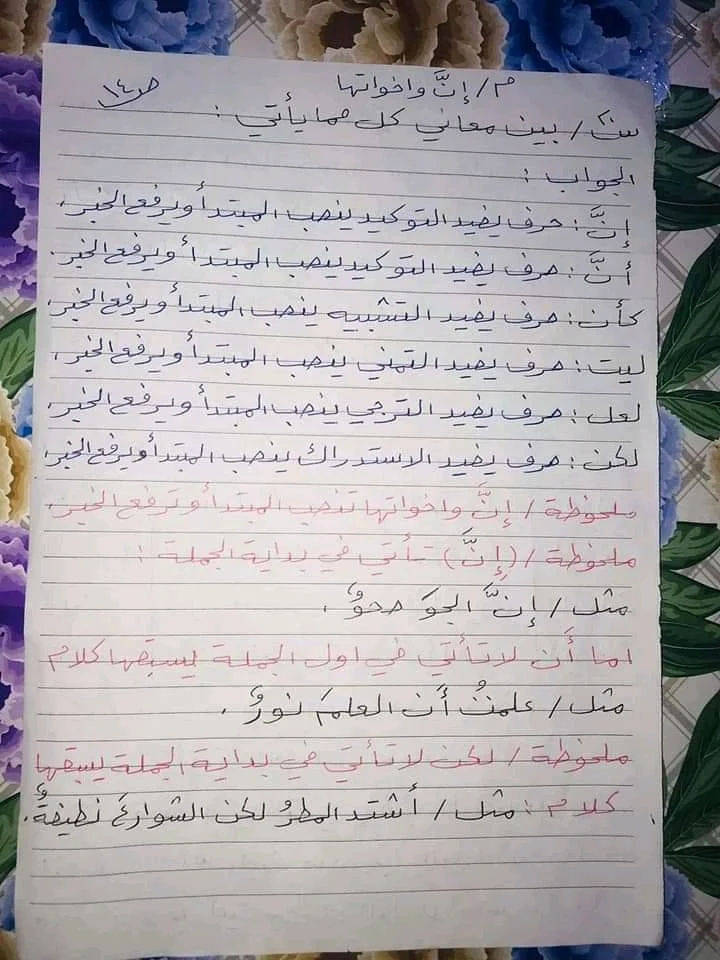 م/ إنَّ واخواتها ص١٤
س٢/ بين معاني كل مما يأتي :
الجواب :
إنَّ : حرف يفيد التوكيد ينصب المبتدأ ويرفع الخبر.
أنَّ : حرف يفيد التوكيد ينصب المبتدأ ويرفع الخبر.
كأن : حرف يفيد التشبيه ينصب المبتدأ ويرفع الخبر.
ليت : حرف يفيد التمني ينصب المبتدأ ويرفع الخبر.
لعل : حرف يفيد الترجي ينصب المبتدأ ويرفع الخبر.
لكن : حرف يفيد الاستدراك ينصب المبتدأ ويرفع الخبر.
ملحوظة / إنَّ واخواتها تنصب المبتدأ وترفع الخبر.
ملحوظة / (إنَّ) تأتي في بداية الجملة :
مثل / إنَّ الجوَ صحوٌ .
اما أَن لاتأتي في اول الجملة يسبقها كلام
مثل / علمتُ أَن العلمَ نورٌ .
ملحوظة / لكن لاتأتي في بداية الجملة يسبقها
كلام : مثل / أشتد المطرُ لكن الشوارعَ نظيفةٌ .